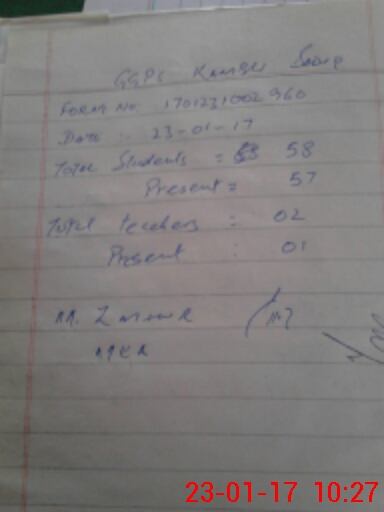 GGPS
Form No 1701231002960
Date :- 23-01-17
Total Students = 58
Present = 57
Total teachers = 02
Present : 01
M.
MEA
23-01-17 10:27